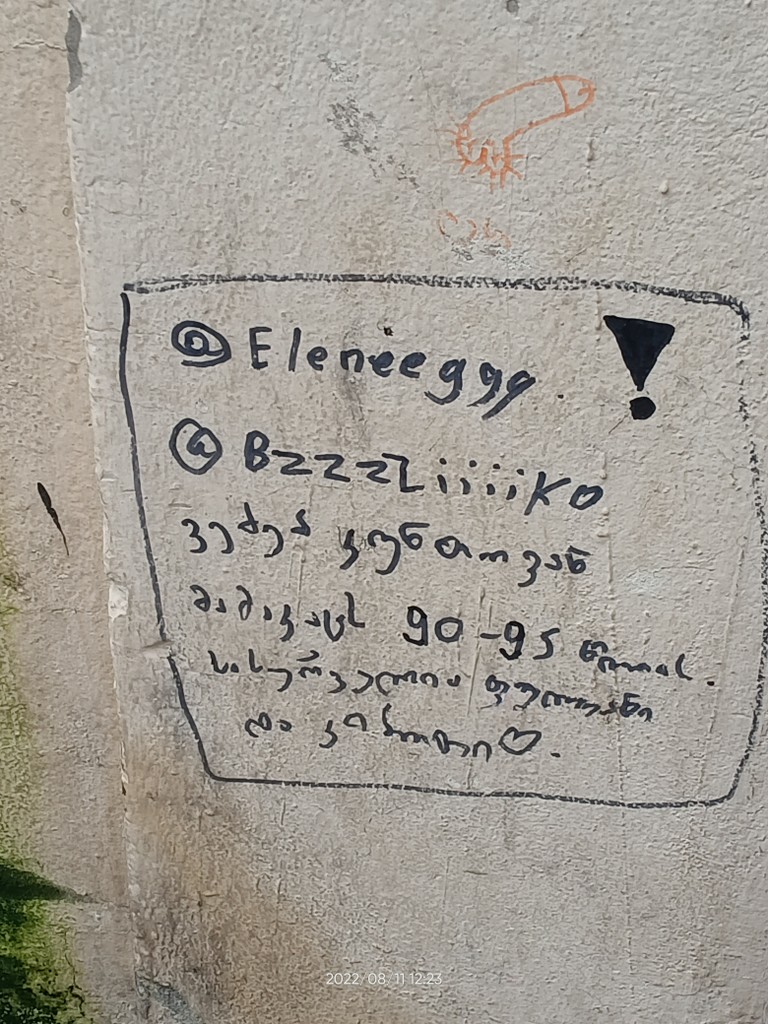 @Eleneeggg
@BzzzZiiiiKo
ვეძებ კუნთოვან
მამაკაცს 90-95 წლის.
სასურველია ფულიანი
და კიბოთი♡.
2022/08/11 12:23